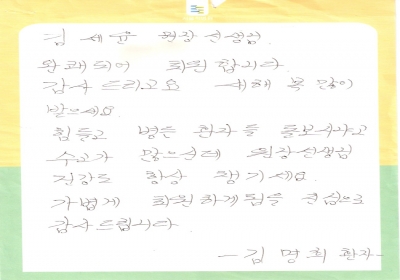 김 세윤 원장 선생님.
완쾌되어 퇴원 합니다.
감사 드리고요 새해 복 많이
받으세요.
힘들고 병든 환자 들 돌보시라고
수고가 많으신데 원장선생님
건강도 항상 챙기세요.
가볍게 퇴원하게됨을 진심으로
감사드립니다.
- 김 명희 환자 -